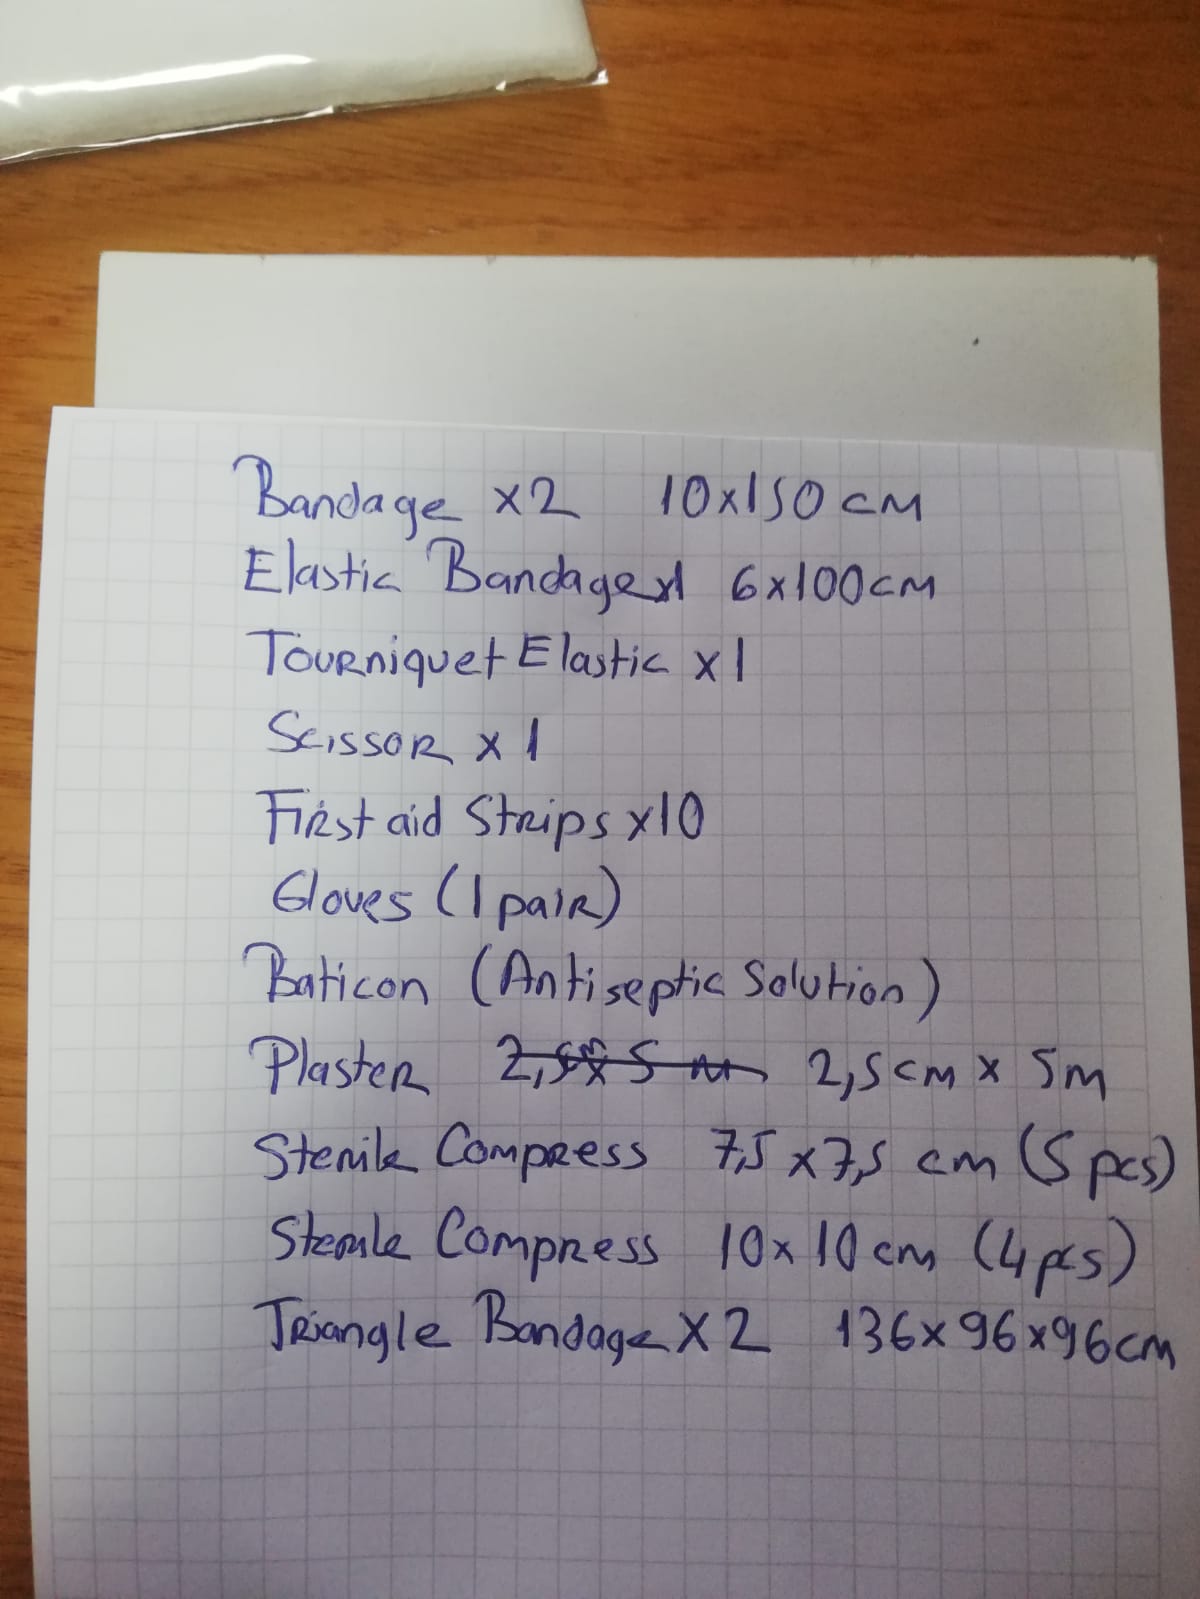 Bandage x2 10x150 cm
Elastic Bandage x1 6x100cm
Tourniquet Elastic x1
Scissor x 1
First aid Strips x10
Gloves (1 pair)
Baticon (Antiseptic Solution)
Plaster 2,5cm x 5m
Sterile Compress 7,5 x 7,5 cm (5 pcs)
Sterile Compress 10x10 cm (4 pcs)
Triangle Bandage X2 136x96x96cm